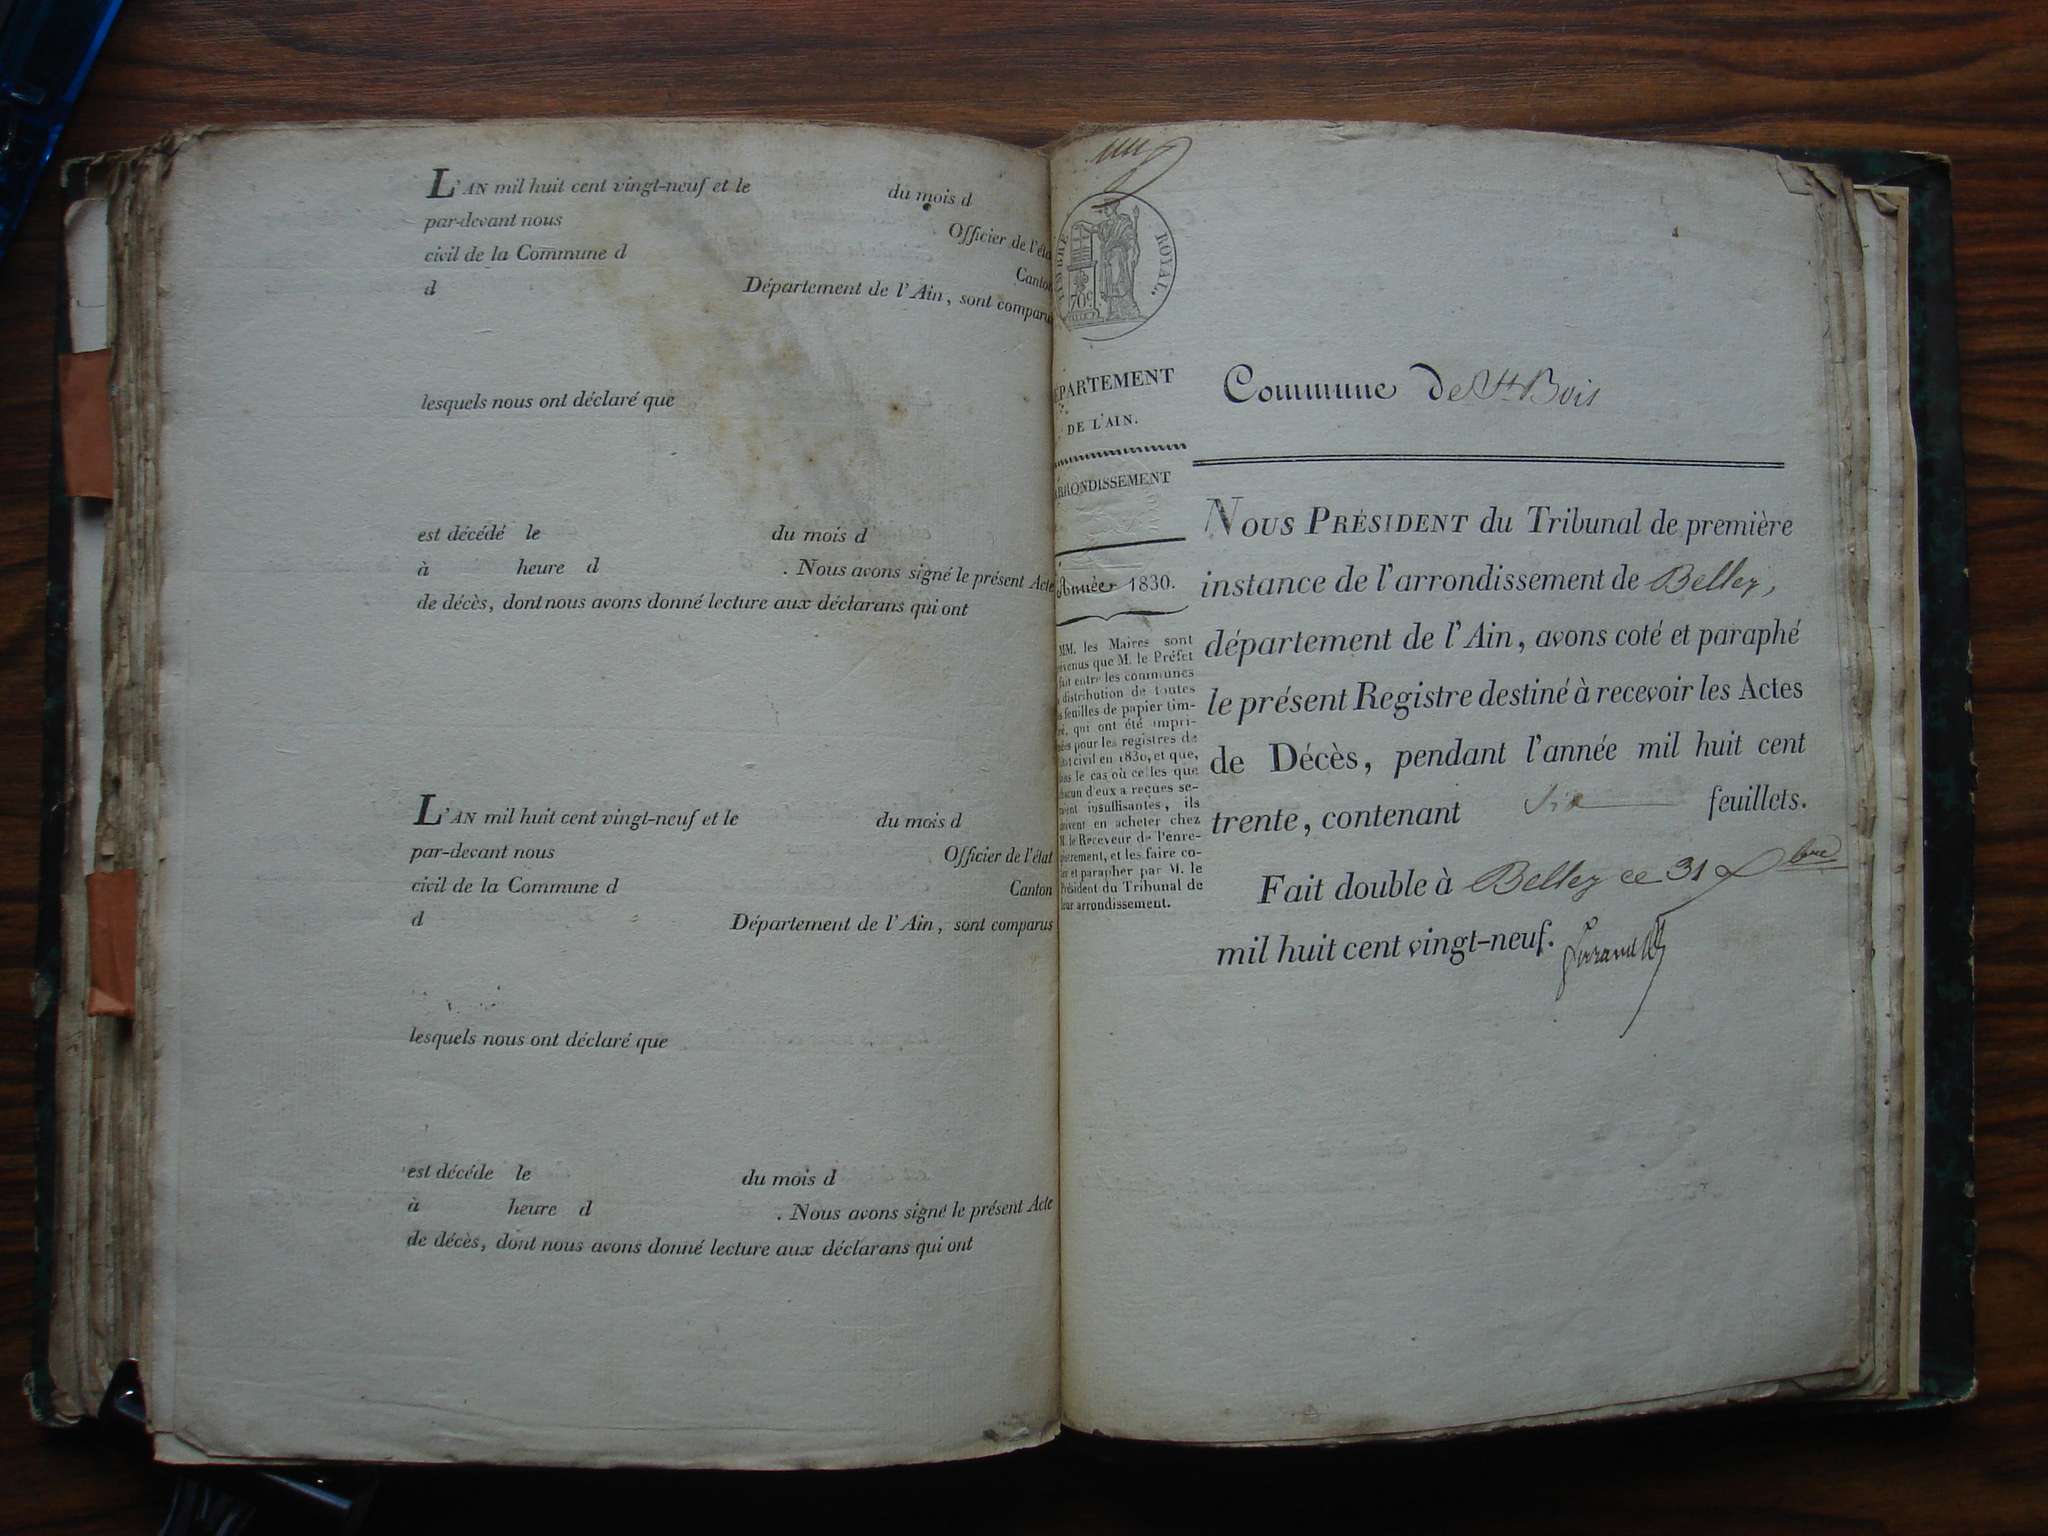 L'AN mil huit cent vingt-neuf et le du mois d
par-devant nous Officier de l'éta
civil de la Commune d Canton
d Département de l'Ain, sont comparus
lesquels nous ont déclaré que
est décédé le du mois d
à heure d . Nous avons signé le présent Acte
de décès, dont nous avons donné lecture aux déclarans qui ont
L'AN mil huit cent vingt-neuf et le du mois d
par-devant nous Officier de l'état
civil de la Commune d Canton
d Département de l'Ain, sont comparus
lesquels nous ont déclaré que
est décédé le du mois d
à heure d . Nous avons signé le présent Acte
de décès, dont nous avons donné lecture aux déclarans qui ont
TIMBRE ROYAL.
70c
ÉPARTEMENT
DE L'AIN.
ARRONDISSEMENT
Année 1830.
MM. les Maires sont
évenus que M. le Préfet
fait entre les communes
distribution de toutes
s feuilles de papier tim-
ré, qui ont été impri-
mées pour les registres de
état civil en 1830, et que,
ns le cas où celles que
hacun d'eux a reçues se-
raient insuffisantes, ils
doivent en acheter chez
M. le Receveur de l'enre-
gistrement, et les faire co-
ter et parapher par M. le
Président du Tribunal de
leur arrondissement.
Commune de St Bois
NOUS PRÉSIDENT du Tribunal de première
instance de l'arrondissement de Belley,
département de l'Ain, avons coté et paraphé
le présent Registre destiné à recevoir les Actes
de Décès, pendant l'année mil huit cent
trente, contenant six feuillets.
Fait double à Belley ce 31 Xbre
mil huit cent vingt-neuf.